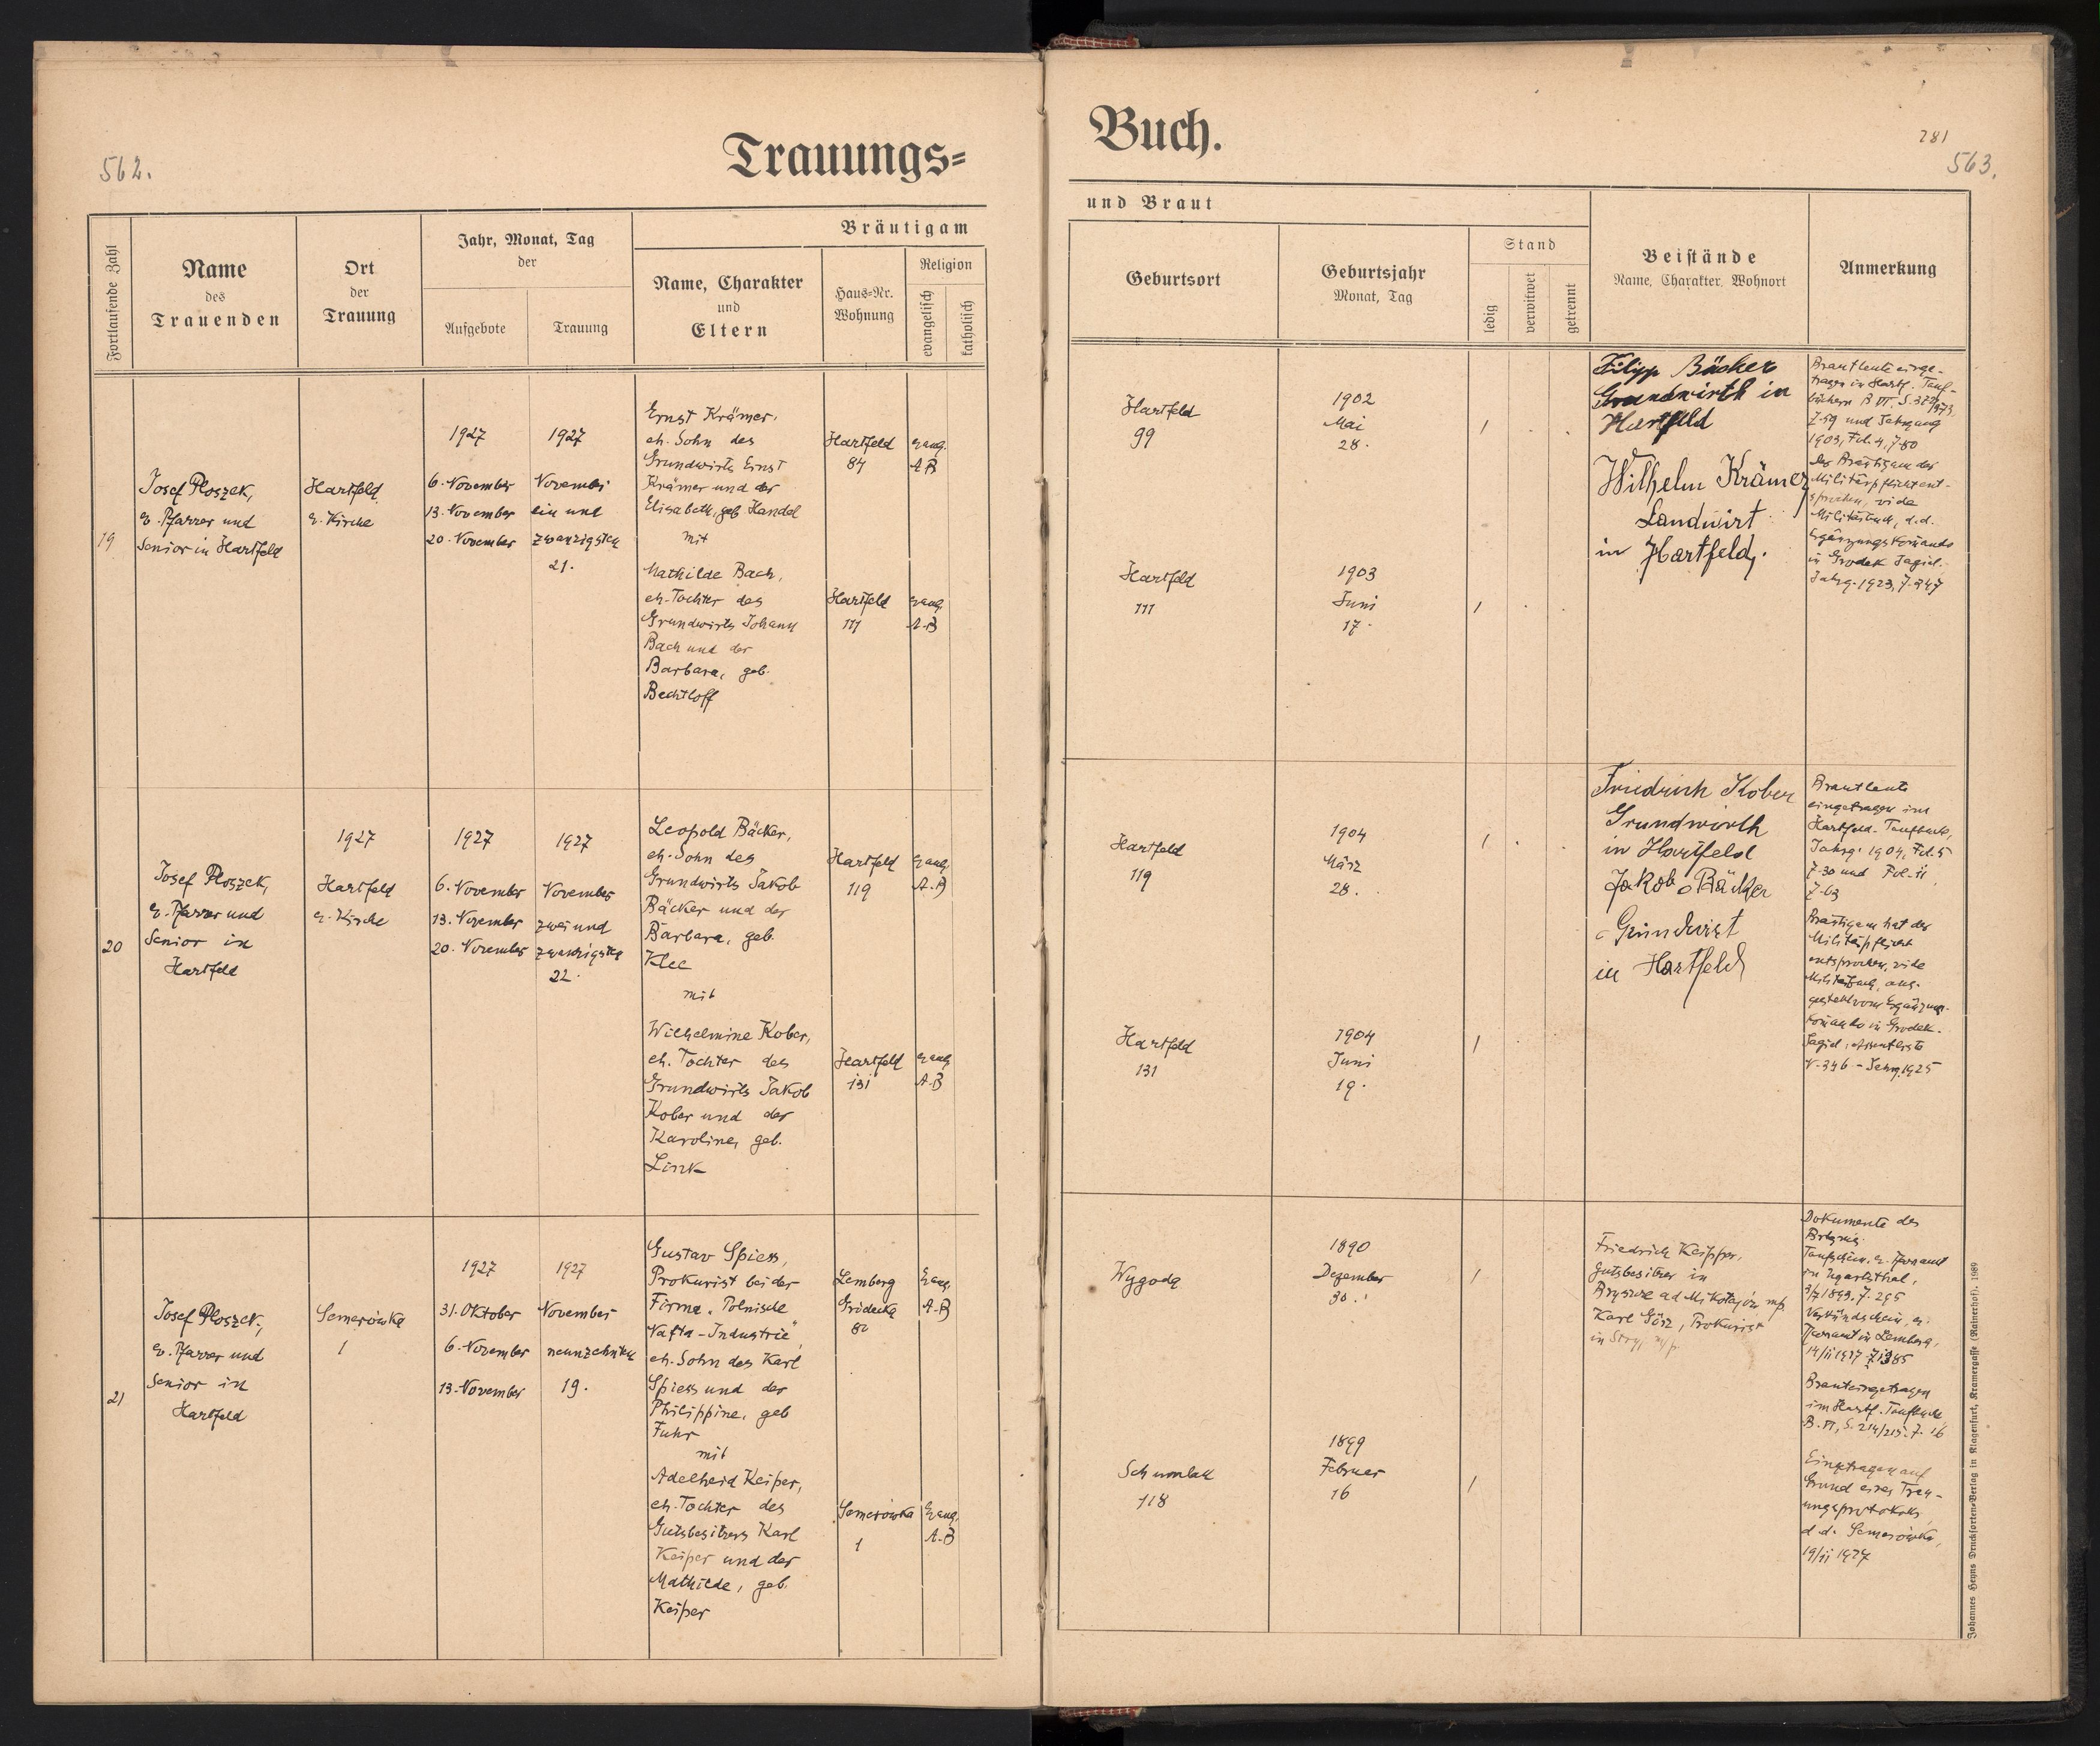 562.
Trauungs=
Fortlaufende Zahl
Name
des
Trauenden
Ort
der
Trauung
Jahr, Monat, Tag
der
Aufgebote
Trauung
Bräutigam
Name, Charakter
und
Eltern
Haus=Nr.
Wohnung
Religion
evangelisch
katholisch
19
Josef Ploszek,
ev. Pfarrer und
Senior in Hartfeld
Hartfeld
ev. Kirche
1927
6. November
13. November
20. November
1927
November
ein und
zwanzigsten
21.
Ernst Krämer,
eh. Sohn des
Grundwirts Ernst
Krämer und der
Elisabeth, geb. Handel
mit
Mathilde Bach,
eh. Tochter des
Grundwirts Johann
Bach und der
Barbara, geb.
Bechtloff
Hartfeld
84
Hartfeld
111
evang.
A.B
evang.
A.B
20
Josef Ploszek,
ev. Pfarrer und
Senior in
Hartfeld
1927
Hartfeld
ev. Kirche
1927
6. November
13. November
20. November
1927
November
zwei und
zwanzigsten
22.
Leopold Bäcker,
eh. Sohn des
Grundwirts Jakob
Bäcker und der
Barbara, geb.
Klee
mit
Wilhelmine Kober,
eh. Tochter des
Grundwirts Jakob
Kober und der
Karoline, geb.
Link
Hartfeld
119
Hartfeld
131
evang.
A.B
evang.
A.B
21
Josef Ploszek,
ev. Pfarrer und
Senior in
Hartfeld
Semerówka
1
1927
31. Oktober
6. November
13. November
1927
November
neunzehnten
19.
Gustav Spiess,
Prokurist bei der
Firma „Polnische
Nafta-Industrie",
eh. Sohn des Karl
Spiess und der
Philippine, geb
Fuhr
mit
Adelheid Keiper,
eh. Tochter des
Gutsbesitzers Karl
Keiper und der
Mathilde, geb.
Keiper
Lemberg
Gródecka
80
Semerówka
1
Evang.
A.B
Evang.
A.B
Buch.
281
563.
und Braut
Geburtsort
Geburtsjahr
Monat, Tag
Stand
ledig
verwitwet
getrennt
Beistände
Name, Charakter, Wohnort
Anmerkung
Hartfeld
99
1902
Mai
28.
Hartfeld
111
1903
Juni
17.
Filipp Bäcker
Grundwirth in
Hartfeld
Wilhelm Krämer
Landwirt
in Hartfeld.
Brautleute einge-
tragen in Hartf. Tauf-
büchern B VI. S. 372/373
Z-59 und Jahrgang
1903, Fol. 4, Z-80
Der Bräutigam der
Militärpflicht ent-
sprochen, vide
Militärbuch, d.d.
Ergänzungskommando
in Grodek Jagiel.
Jahrg. 1923, Z-347
Hartfeld
119
1904
März
28.
Hartfeld
131
1904
Juni
19.
Friedrich Kober
Grundwirth
in Hartfeld
Jakob Bäcker
Grundwirt
in Hartfeld
Brautleute
eingetragen im
Hartfeld. Taufbuch,
Jahrg. 1904, Fol. 5
Z-30 und Fol. 11
Z-63
Bräutigam hat der
Militärpflicht
entsprochen, vide
Militärbuch, aus-
gestellt vom Ergänzungs-
kommando in Grodek-
Jagiel.
N-346 - Jahrg. 1925
Wygoda
1890
Dezember
30.
Schumlau
118
1899
Februar
16
Friedrich Keipper,
Gutsbesitzer in
Brysrze ad Mikołajów mp.
Karl Görz, Prokurist
in Stryj, m/p.
Dokumente des
Taufschein, ev. Pfarramt
in Ugartsthal,
Z. 295
Verkündschein, ev.
Pfarramt in Lemberg,
14/11 1927 Z 1385
Braut eingetragen
im Hartf. Taufbuche
B. VI, S. 214/215. Z. 16
Eingetragen auf
Grund eines Trau-
ungsprotokolls,
d.d. Semerówka,
19/11 1927
Johannes Heyns Drucksorten=Verlag in Klagenfurt, Kramergasse (Rainerhof). 1989